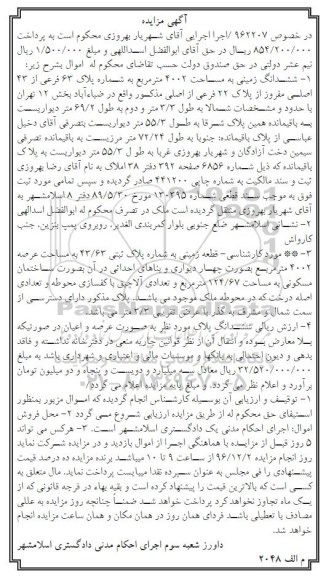 آگهی مزایده
در خصوص ۹۶۲۲۰۷ /اجرا اجرایی آقای شهریار بهروزی محکوم است به پرداخت
۸۵۴/۲۰۰/۰۰۰ ریال در حق آقای ابوالفضل اسداللهی و مبلغ ۱/۵۰۰/۰۰۰ ریال
نیم عشر دولتی در حق صندوق دولت حسب تقاضای محکوم له اموال بشرح زیر:
۱- ششدانگ زمینی به مساحت ۴۰۰۲ مترمربع به شماره پلاک ۶۳ فرعی از ۴۳
اصلی مفروز از پلاک ۲۲ فرعی از اصلی مذکور واقع در ضیاءآباد بخش ۱۲ تهران
با حدود و مشخصات شمالا به طول ۳/۳ متر و دوم به طول ۶۹/۲ متر دیواریست
به باقیمانده همین پلاک شرقا به طول ۵۵/۳ متر دیواریست بتصرفی آقای دخیل
عباسی از پلاک باقیمانده: جنوبا به طول ۷۲/۲۴ متر مرزیست به باقیمانده تصرفی
سیمین دخت آزادگان و شهریار بهروزی غربا به طول ۵۵/۳ متر دیواریست به پلاک
باقیمانده که ذیل شماره ۶۸۵۶ صفحه ۳۹۲ دفتر ۳۸ املاک به نام آقای رضا بهروزی
ثبت و سند مالکیت به شماره چاپی ۴۴۱۲۰۰ صادر گردیده و سپس تمامی مورد ثبت
فوق به موجب سند قطعی شماره ۱۳۰۴۹۵ مورخ ۸۹/۵/۳۰ دفتر ۸ اسلامشهر به
آقای شهریار بهروزی منتقل گردیده است ملک در تصرف محکوم له ابوالفضل اسدالهی
۲- نشانی اسلامشهر ضلع جنوبی بلوار کمربندی الغدیر، روبروی پمپ بنزین، جنب
کارواش
۳- ** مورد کارشناسی- قطعه زمینی به شماره پلاک ثبتی ۴۳/۶۳ به مساحت عرصه
۴۰۰۲ مترمربع بصورت چهار دیواری و بناهای احداثی در آن بصورت ساختمان
مسکونی به مساحت ۱۲۴/۶۷ مترمربع و تعدادی آلاچیق با کفسازی محوطه و تعدادی
اصله درخت که در محوطه ملک موجود می باشد. پلاک مذکور دارای دسترسی از
سمت شمال و مشرف به گذر با عرض تقریبی ۳/۳ متر می باشد.
۴- ارزش ریالی ششدانگ پلاک مورد نظر به صورت عرصه و اعیان در صورتیکه
بلا معارض بوده و انتقال آن از نظر قوانین جاریه منعی در دفترخانه نداشته و فاقد
بدهی و دیون احتمالی به بانکها و موسسات مالی و اعتباری و شهرداری باشد به مبلغ
۳۲/۵۲۰/۰۰۰/۰۰۰ ریال معادل سه میلیارد و دویست و پنجاه و دو میلیون تومان
برآورد و اعلام نظر می گردد. و مبلغ پایه مزایده اعلام می گردد/
۱- توقیف و ارزیابی آن بوسیله کارشناس انجام گردیده که اموال مزبور بمنظور
استیفای حق محکوم له از طریق مزایده ارزیابی شروع می گردد ۲- محل فروش
اموال: اجرای احکام مدنی یک دادگستری اسلامشهر است. ۳- هرکس می تواند
۵ روز قبل از مزایده با هماهنگی اجرا از اموال بازدید و در مزایده شرکت نماید
روز انجام مزایده ۹۶/۱۲/۲ از ساعت ۹ تا ۱۰ میباشد برنده مزایده ده درصد قیمت
پیشنهادی را فی مجلس به عنوان سپرده نقدا میبایست پرداخت نماید. مال متعلق به
کسی است که بالاترین قیمت را پیشنهاد کرده است و بقیه بهاء در فرجه قانونی که از
یک ماه تجاوز نخواهد کرد پرداخت خواهد شد ضمناً چنانچه روز مزایده به عللی
مصادف با تعطیلی باشد فردای همان روز در همان مکان و همان ساعت مزایده انجام
خواهد شد.
داورز شعبه سوم اجرای احکام مدنی دادگستری اسلامشهر
م الف ۲۰۴۸